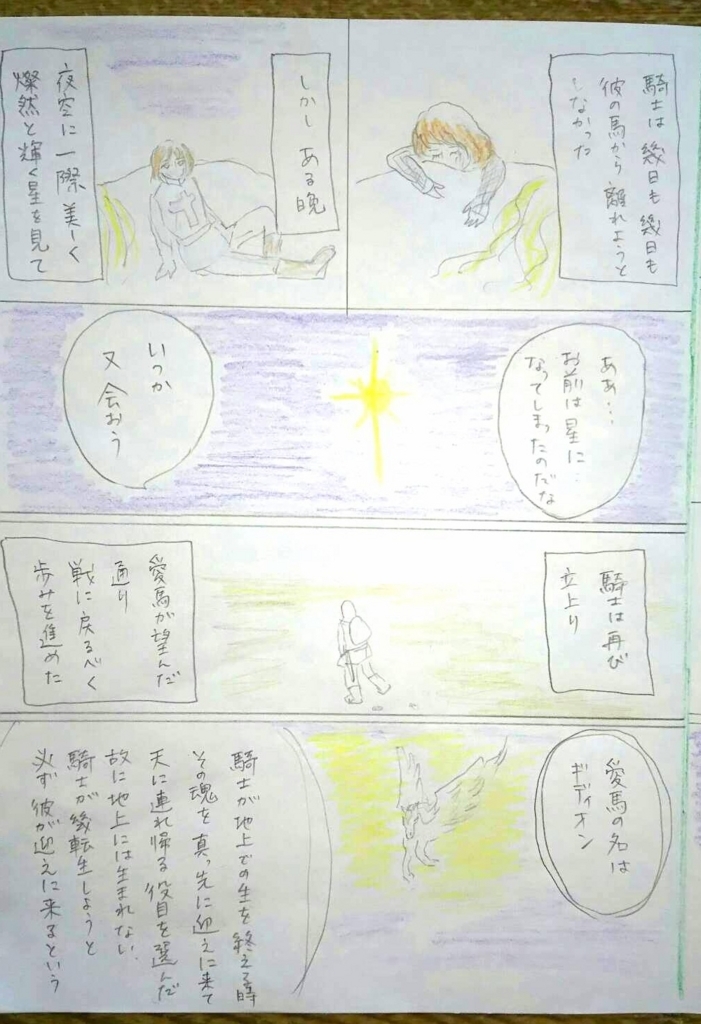 騎士は 幾日も 幾日も
彼の馬から 離れようと
しなかった
しかし ある晩
夜空に 一際 美しく
燦然と 輝く星を見て
ああ・・・
お前は 星に・・
なってしまったのだな
いつか
又 会おう
騎士は 再び
立上り
愛馬が望んだ
通り
戦に戻るべく
歩みを進めた
愛馬の名は
ギディオン
騎士が地上での生を 終える時
その魂を 真っ先に迎えに来て
天に連れ帰る 役目を選んだ
故に 地上には 生まれない
騎士が 幾転生しようと
必ず 彼が迎えに来るという